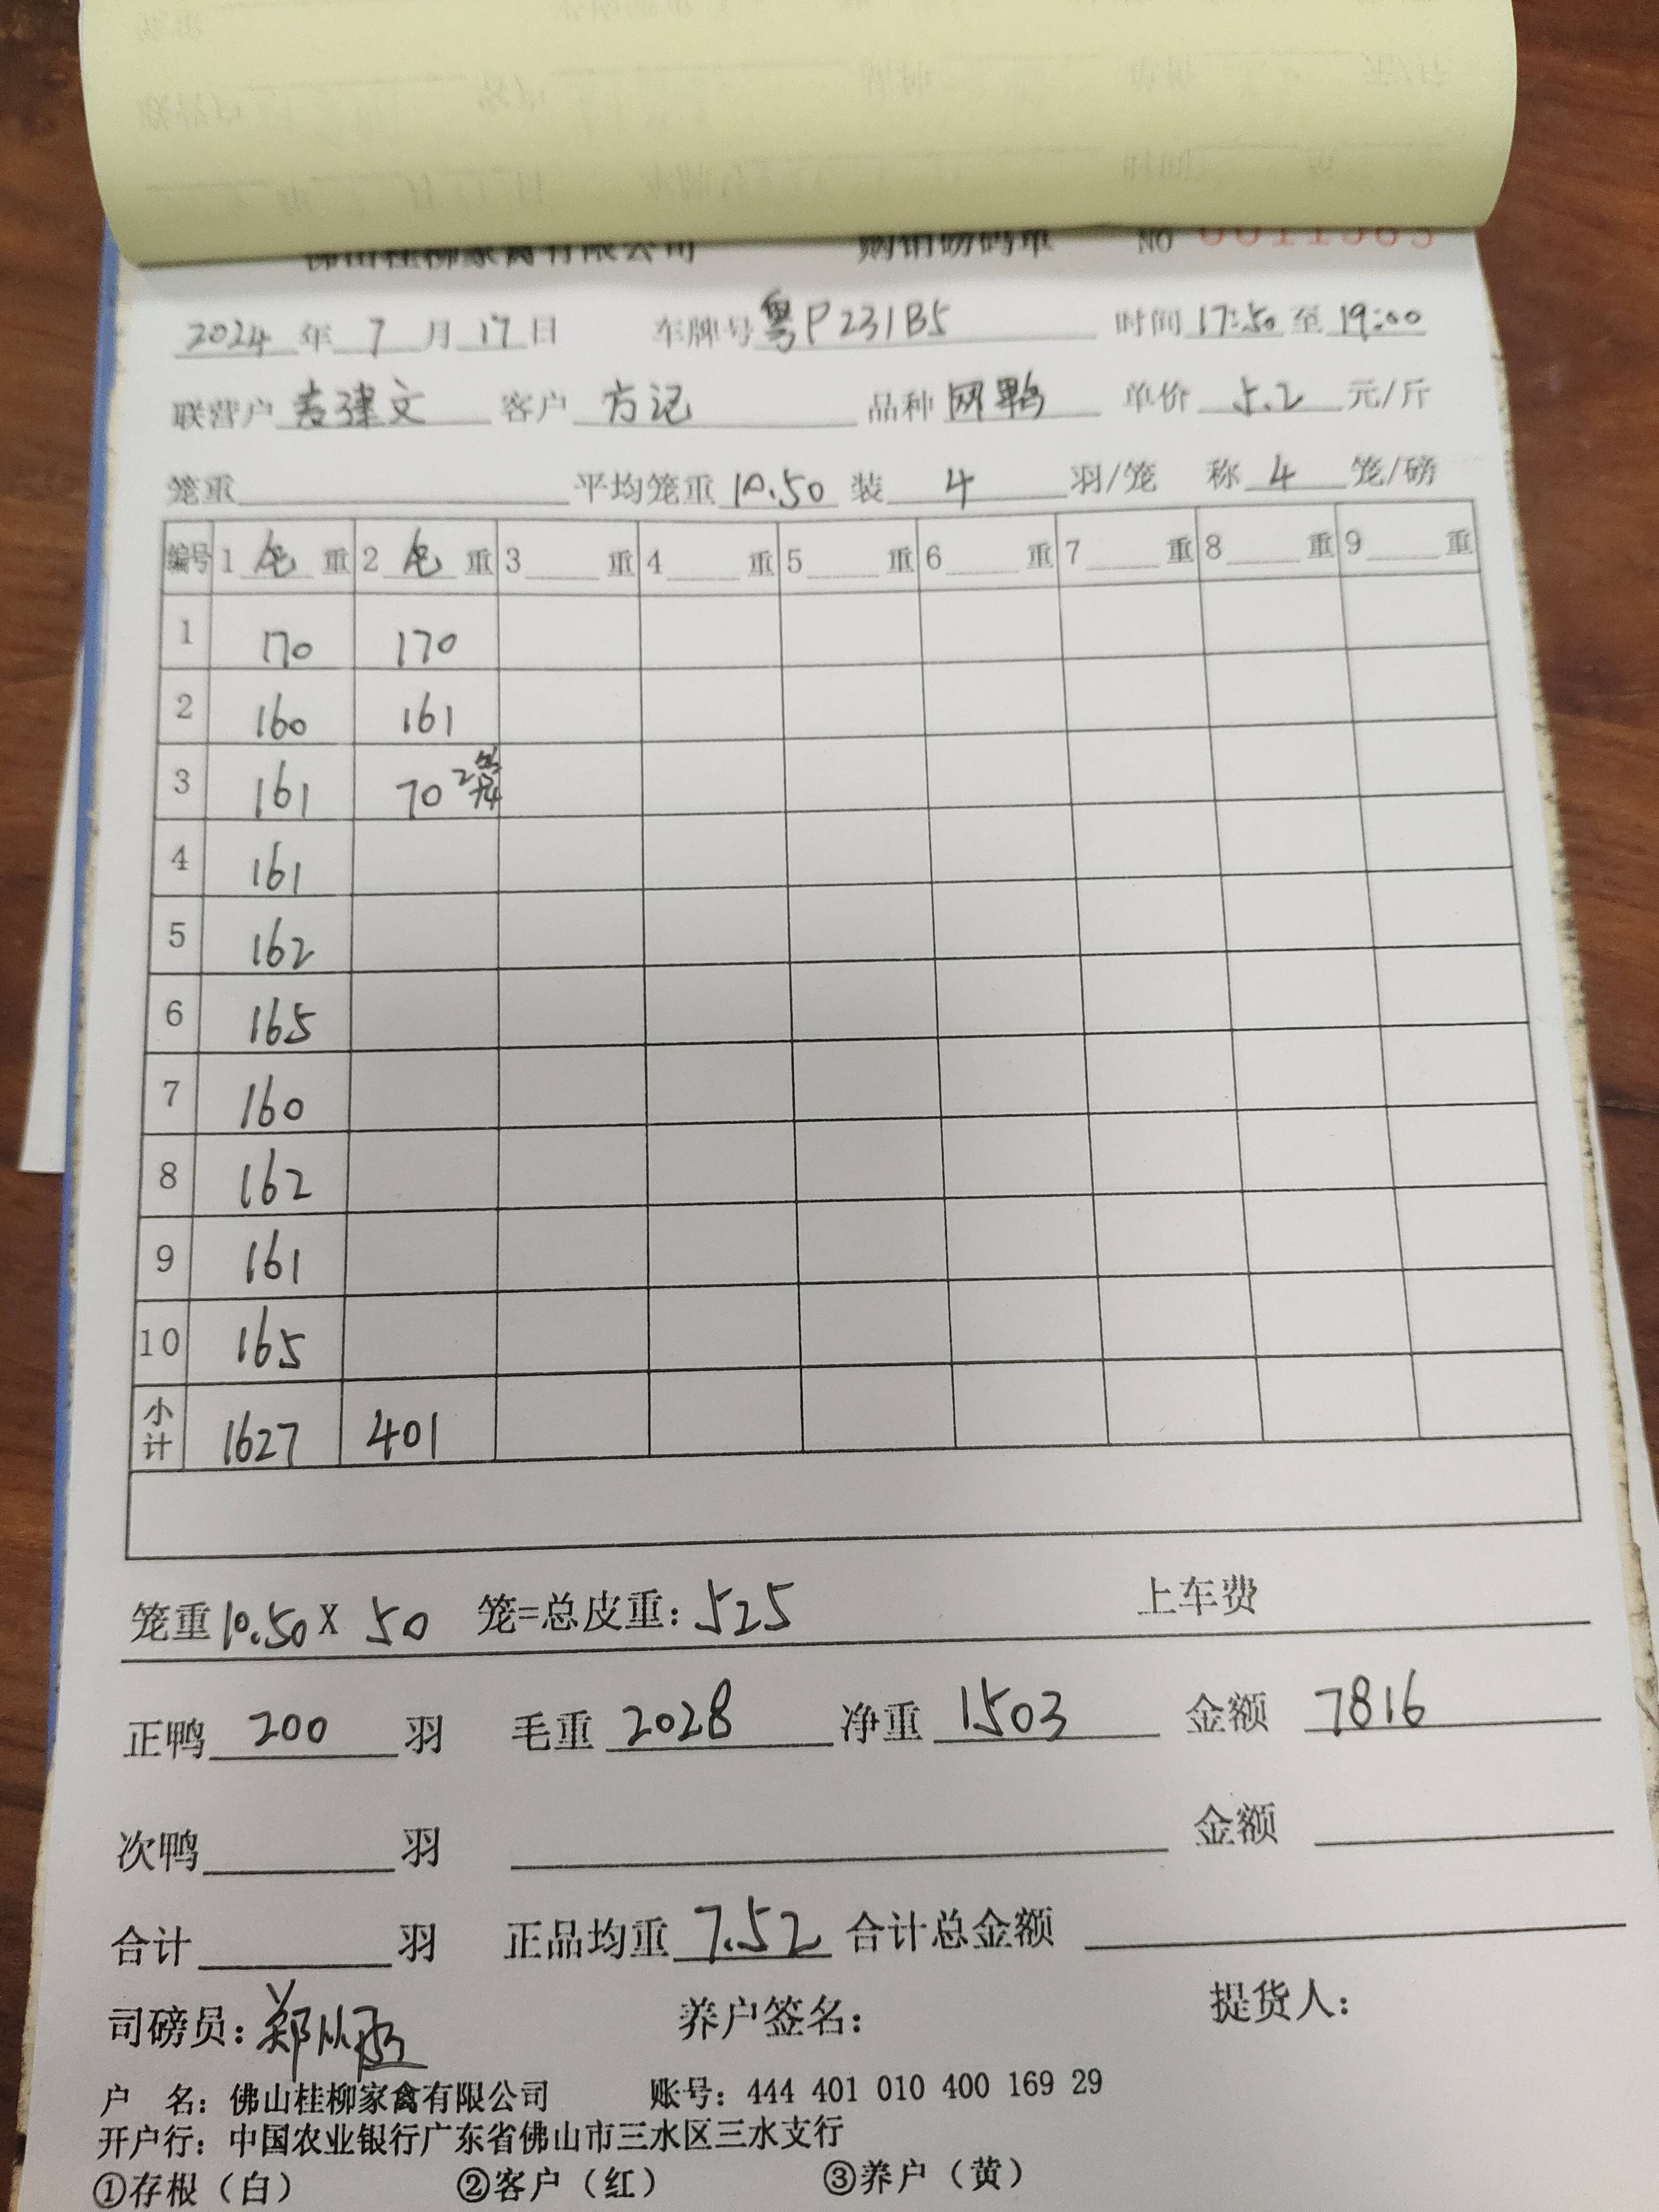 佛山桂柳家禽有限公司 购销磅码单 NO 0011565
2024 年 7 月 17 日 车牌号 粤P231B5 时间 17:50 至 19:00
联营户 建文 客户 方记 品种 网鸭 单价 5.2 元/斤
笼重 平均笼重 10.50 装 4 羽/笼 称 4 笼/磅
编号 1 毛 重 2 毛 重 3 重 4 重 5 重 6 重 7 重 8 重 9 重
1 170 170
2 160 161
3 161 70 2笼
4 161
5 162
6 165
7 160
8 162
9 161
10 165
小计 1627 401
笼重 10.50 X 50 笼=总皮重: 525 上车费
正鸭 200 羽 毛重 2028 净重 1503 金额 7816
次鸭 羽 金额
合计 羽 正品均重 7.52 合计总金额
司磅员: 郑 养户签名: 提货人:
户 名: 佛山桂柳家禽有限公司 账号: 444 401 010 400 169 29
开户行: 中国农业银行广东省佛山市三水区三水支行
①存根（白） ②客户（红） ③养户（黄）